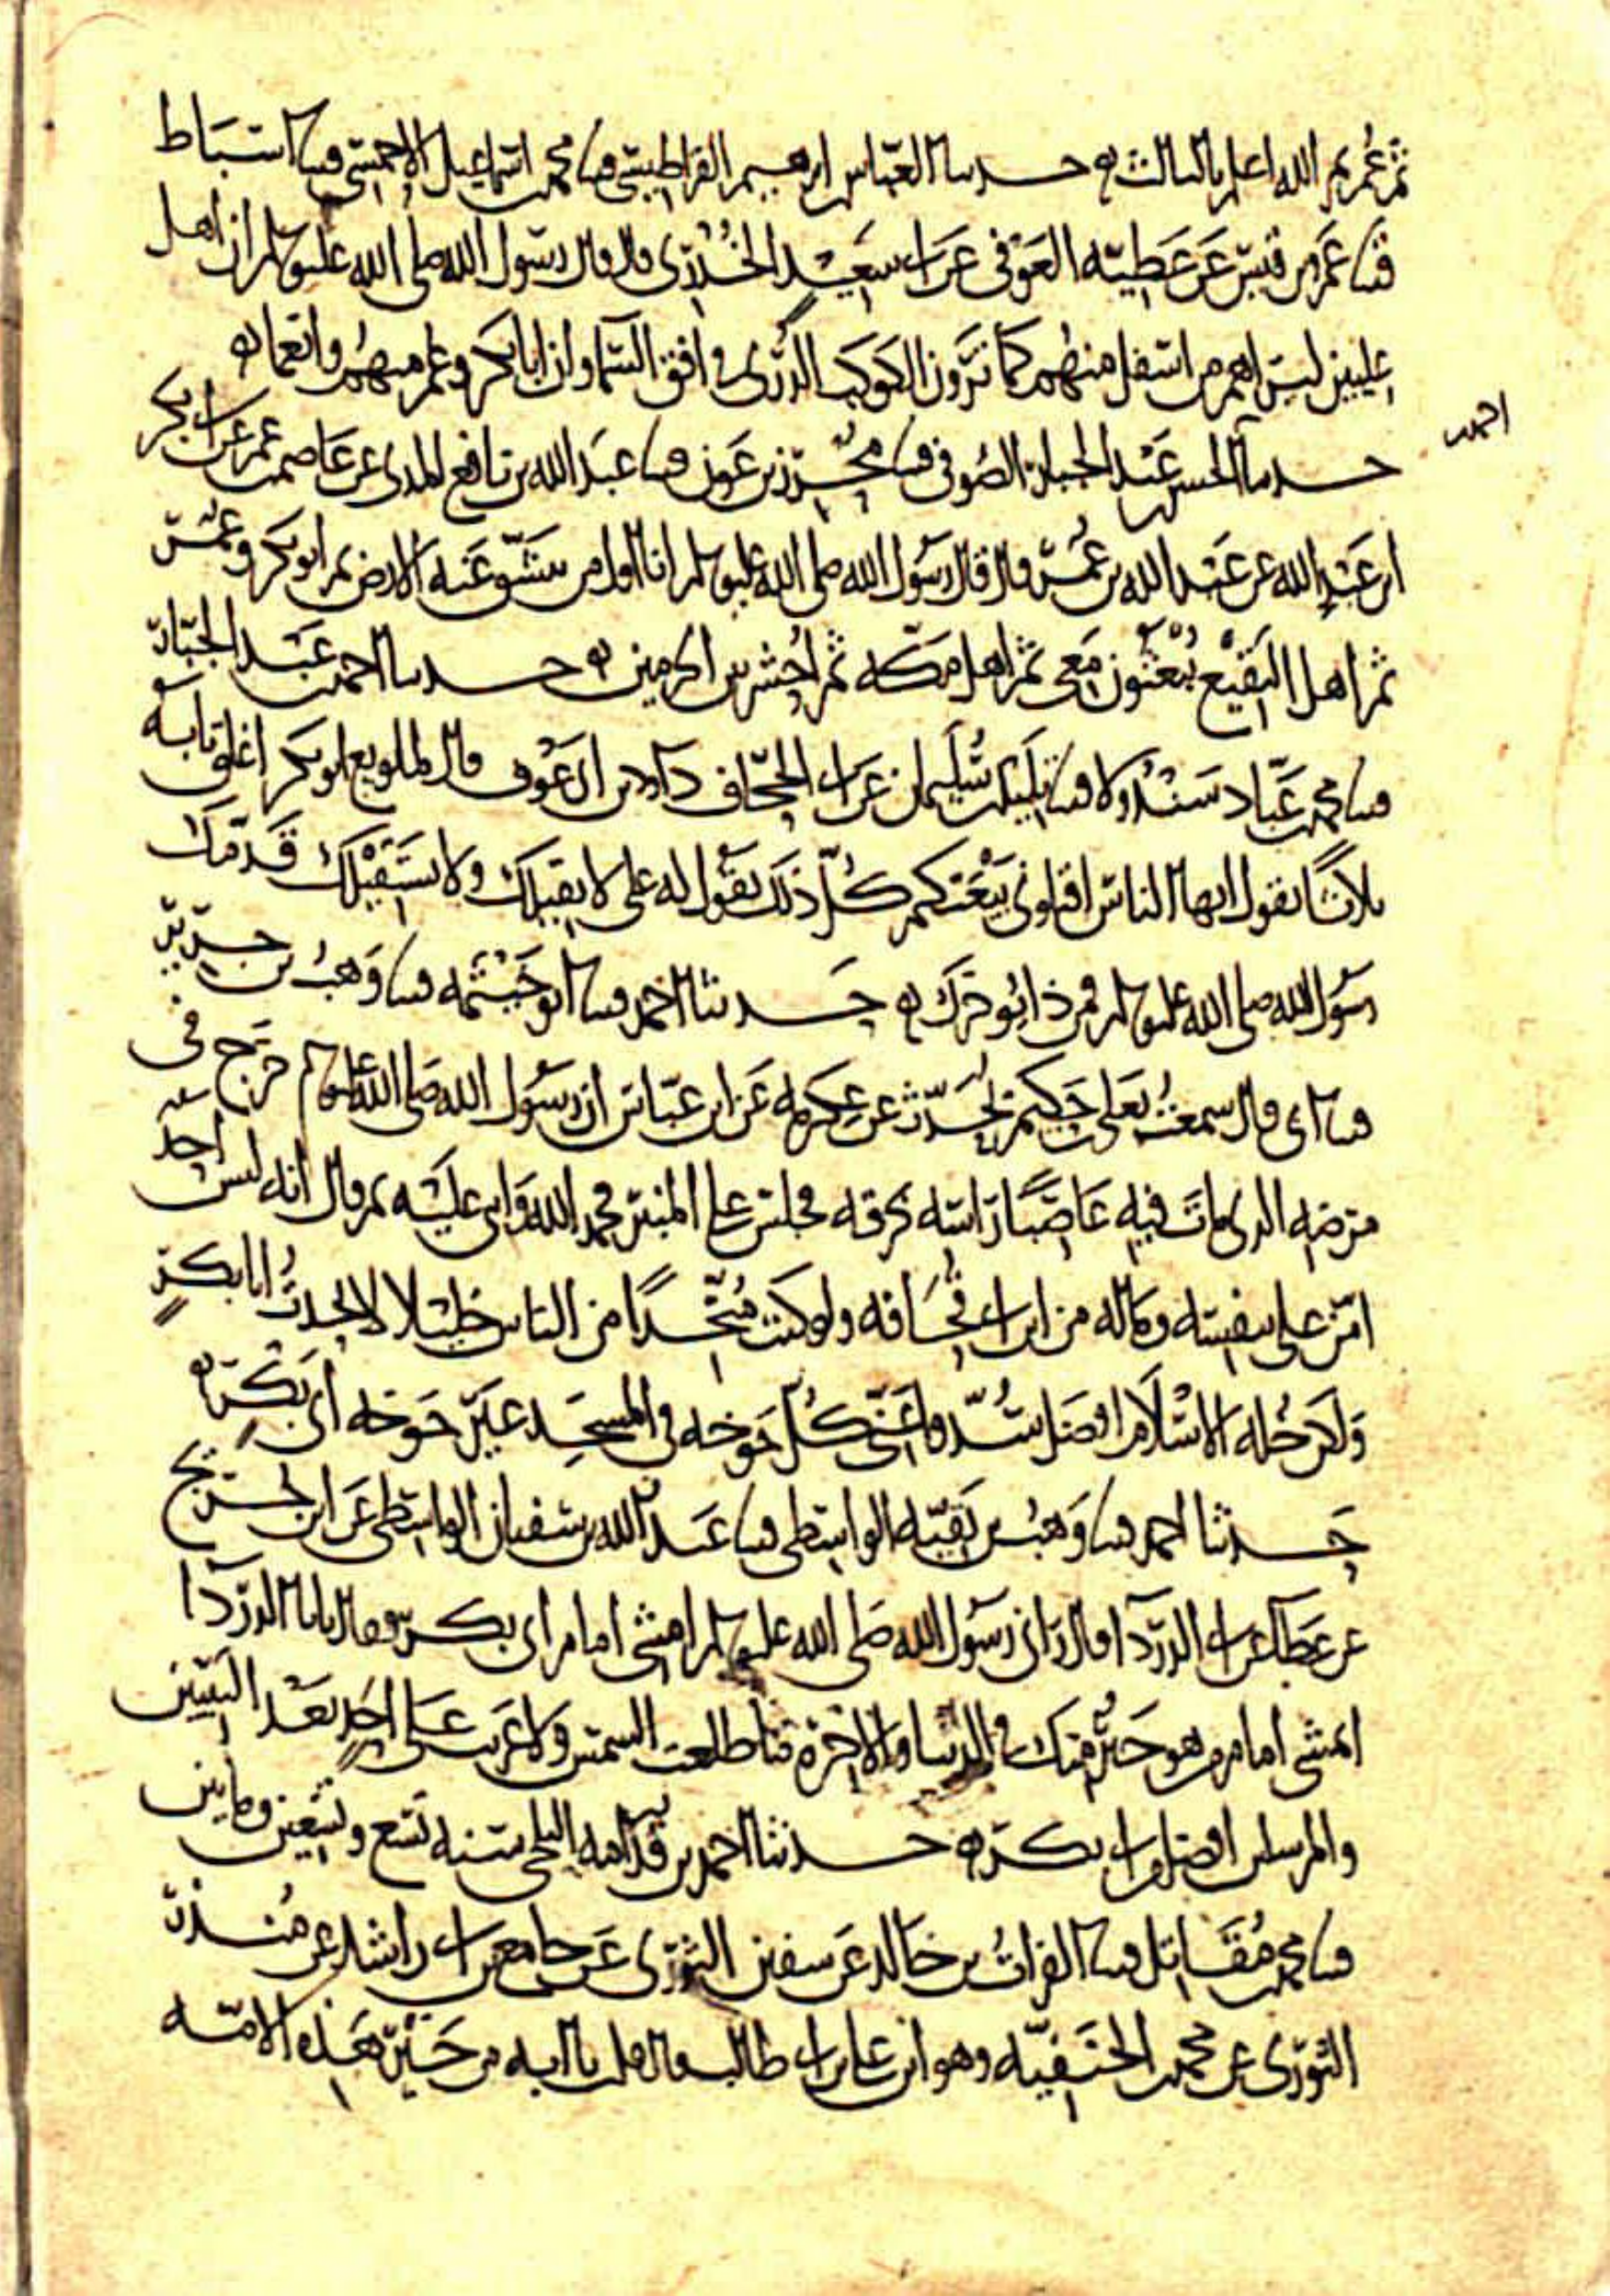 ثم عمر ثم الله اعلم بالثالث ه حدثنا العباس بن ابرهيم القراطيسي قثنا محمد بن اسماعيل الاحمسي قثنا اسباط
قثنا عمرو بن قيس عن عطية العوفي عن ابي سعيد الخدري قال قال رسول الله صلى الله عليه وسلم ان اهل
عليين ليراهم من اسفل منهم كما ترون الكوكب الدري في افق السما وان ابا بكر وعمر منهم وانعما ه
احمد
حدثنا الحسن بن عبد الجبار الصوفي قثنا محرز بن عون قثنا عبد الله بن نافع المدني عن عاصم بن عمر عن ابي بكر
ابن عبد الله عن عبد الله بن عمر قال قال رسول الله صلى الله عليه وسلم انا اول من تنشق عنه الارض ثم ابو بكر وعمر
ثم اهل البقيع يبعثون معي ثم اهل مكة ثم احشر بين الحرمين ه حدثنا احمد بن عبد الجبار
قثنا محمد بن عباد سندولا قثنا تليد بن سليمان عن ابي الجحاف داود بن ابي عوف قال لما بويع ابو بكر اغلق بابه
ثلاثا يقول ايها الناس اقيلوني بيعتكم كل ذلك يقول له علي لا نقيلك ولا نستقيلك قدمك
رسول الله صلى الله عليه وسلم فمن ذا يؤخرك ه حدثنا احمد قثنا ابو خيثمة قثنا وهب بن جرير
قثنا ابي قال سمعت يعلى بن حكيم يحدث عن عكرمة عن ابن عباس ان رسول الله صلى الله عليه وسلم خرج في
مرضه الذي مات فيه عاصبا راسه بخرقة فجلس على المنبر فحمد الله واثنى عليه ثم قال انه ليس احد
امن علي بنفسه وماله من ابن ابي قحافة ولو كنت متخذا من الناس خليلا لاتخذت ابا بكر
ولكن خلة الاسلام افضل سدوا عني كل خوخة في المسجد غير خوخة ابي بكر ه
حدثنا احمد قثنا وهب بن بقية الواسطي قثنا عبد الله بن سفيان الواسطي عن ابن جريج
عن عطا عن ابي الدردا قال راني رسول الله صلى الله عليه وسلم امشي امام ابي بكر فقال يا با الدردا
اتمشي امام من هو خير منك في الدنيا والاخرة ما طلعت الشمس ولا غربت على احد بعد النبيين
والمرسلين افضل من ابي بكر ه حدثنا احمد بن قدامة البلخي سنة تسع وتسعين ومايتين
قثنا محمد بن مقاتل قثنا الفرات بن خالد عن سفين الثوري عن جامع بن ابي راشد عن منذر
الثوري عن محمد بن الحنفية وهو ابن علي بن ابي طالب قال قلت يا ابه من خير هذه الامة